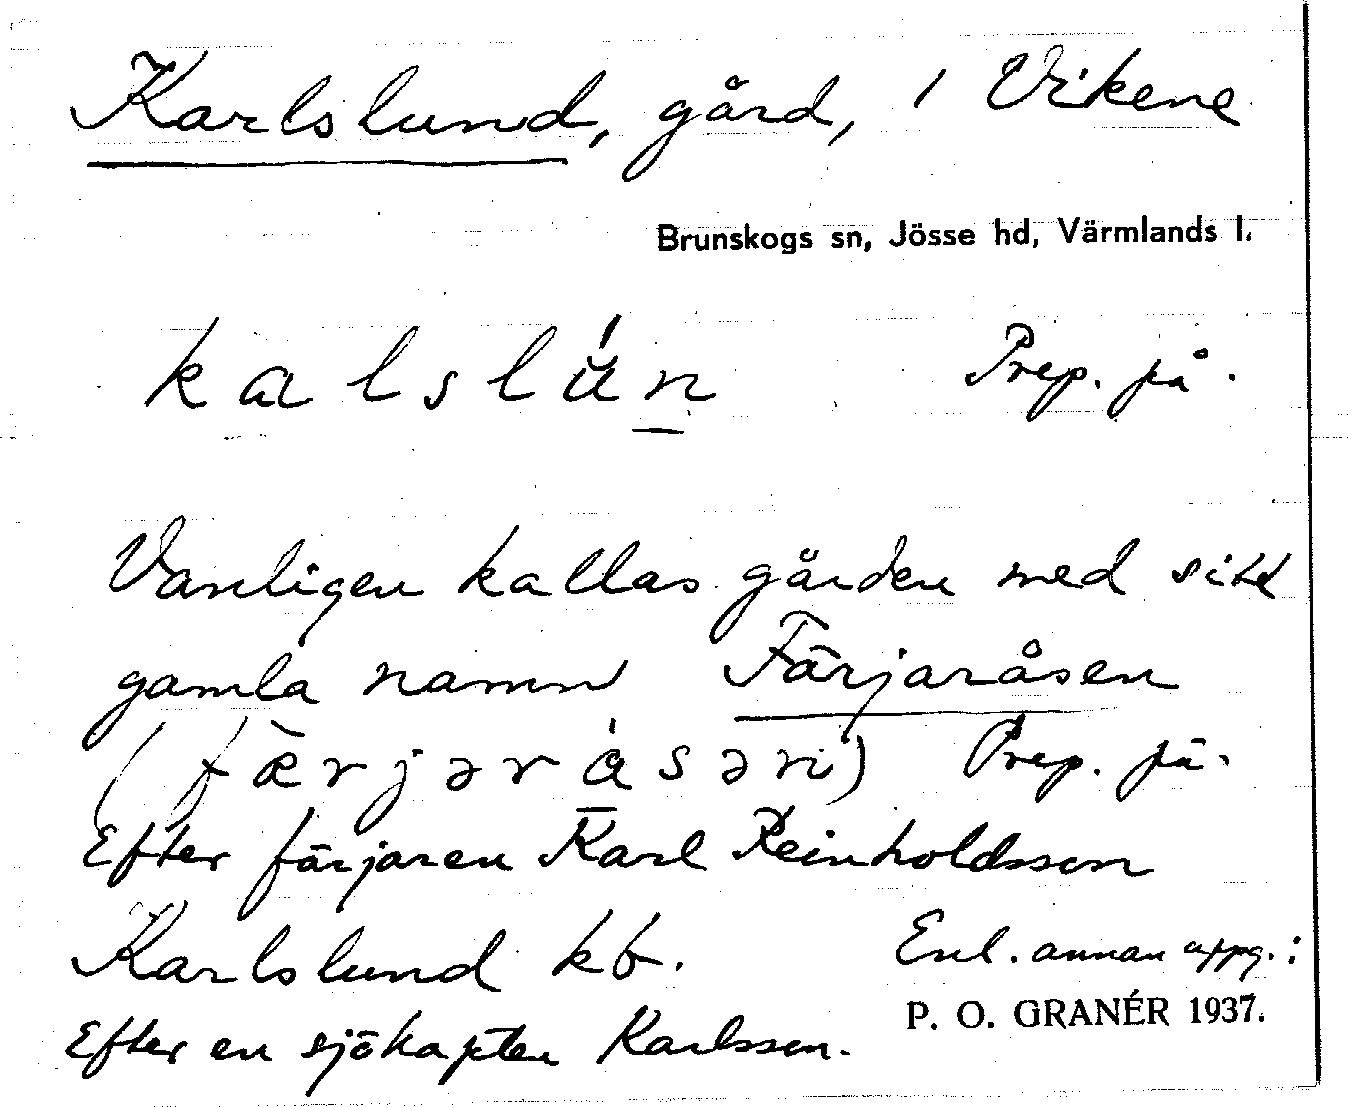 Karlslund, gård, i Vikene
Brunskogs sn, Jösse hd, Värmlands l.
kalslún Prep. på.
Vanligen kallas gården med sitt
gamla namn Färjaråsen
(færjəråsən) Prep. på.
Efter färjaren Karl Reinholdsson
Karlslund kb. Enl. annan uppg.:
P. O. GRANÉR 1937.
Efter en sjökapten Karlsson.